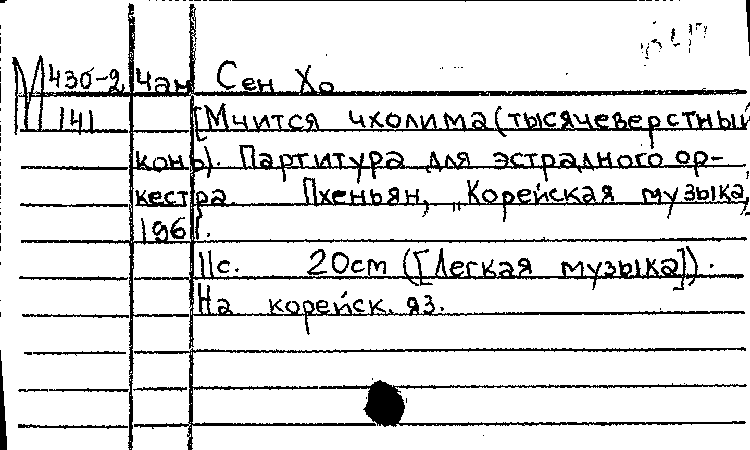 М430-2 Чан Сен Хо
141 [Мчится чхолима (тысячеверстный
конь). Партитура для эстрадного ор-
кестра. Пхеньян, „Корейская музыка,
1961.
11с. 20cm ([Легкая музыка]).
На корейск. яз.